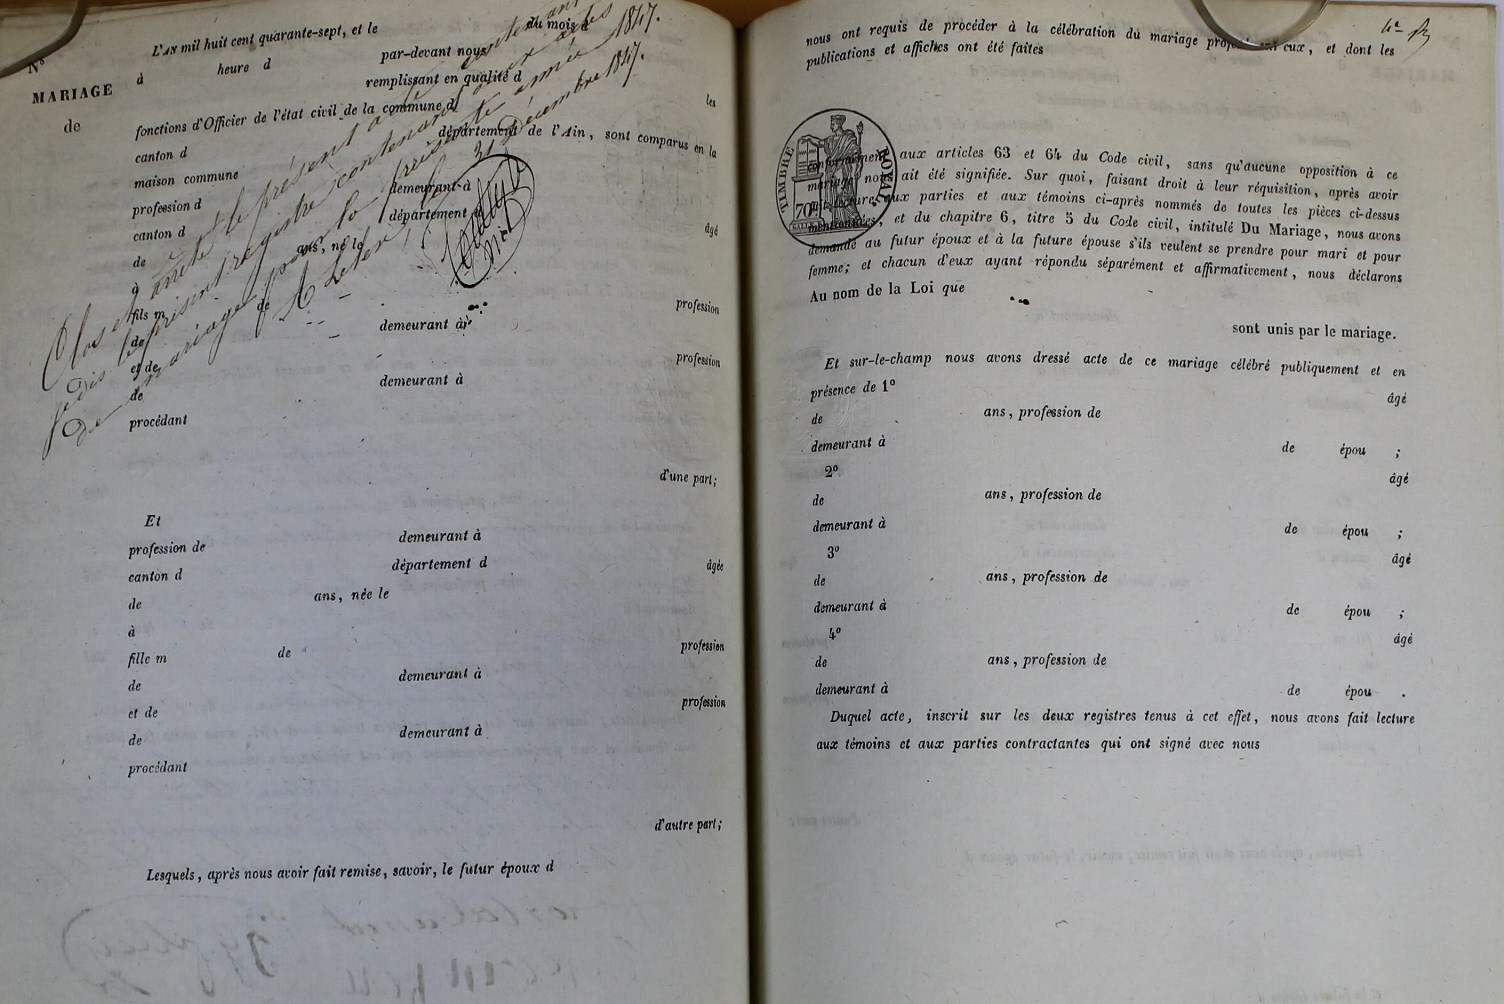 L'AN mil huit cent quarante-sept, et le du mois d
N° à heure d par-devant nous
MARIAGE remplissant en qualité d
de fonctions d'Officier de l'état civil de la commune d les
canton d département de l'Ain, sont comparus en la
maison commune
profession d demeurant à
canton d département
de ans, né le âgé
à
fils m de profession
de demeurant à
et de profession
de demeurant à
procédant
d'une part;
Clos et arrêté le présent
dis le présent registre contenant actes
De mariage pour la présente année 1847.
A Leter 31 Décembre 1847.
Et
profession de demeurant à
canton d département d
de ans, née le âgée
à
fille m de profession
de demeurant à
et de profession
de demeurant à
procédant
d'autre part;
Lesquels, après nous avoir fait remise, savoir, le futur époux d
nous ont requis de procéder à la célébration du mariage projeté entre eux, et dont les
publications et affiches ont été faites
TIMBRE ROYAL
70
conformément aux articles 63 et 64 du Code civil, sans qu'aucune opposition à ce
mariage nous ait été signifiée. Sur quoi, faisant droit à leur réquisition, après avoir
fait lecture aux parties et aux témoins ci-après nommés de toutes les pièces ci-dessus
mentionnées, et du chapitre 6, titre 5 du Code civil, intitulé Du Mariage, nous avons
demandé au futur époux et à la future épouse s'ils veulent se prendre pour mari et pour
femme; et chacun d'eux ayant répondu séparément et affirmativement, nous déclarons
Au nom de la Loi que
sont unis par le mariage.
Et sur-le-champ nous avons dressé acte de ce mariage célébré publiquement et en
présence de 1° âgé
de ans, profession de
demeurant à de épou ;
2° âgé
de ans, profession de
demeurant à de épou ;
3° âgé
de ans, profession de
demeurant à de épou ;
4° âgé
de ans, profession de
demeurant à de épou .
Duquel acte, inscrit sur les deux registres tenus à cet effet, nous avons fait lecture
aux témoins et aux parties contractantes qui ont signé avec nous